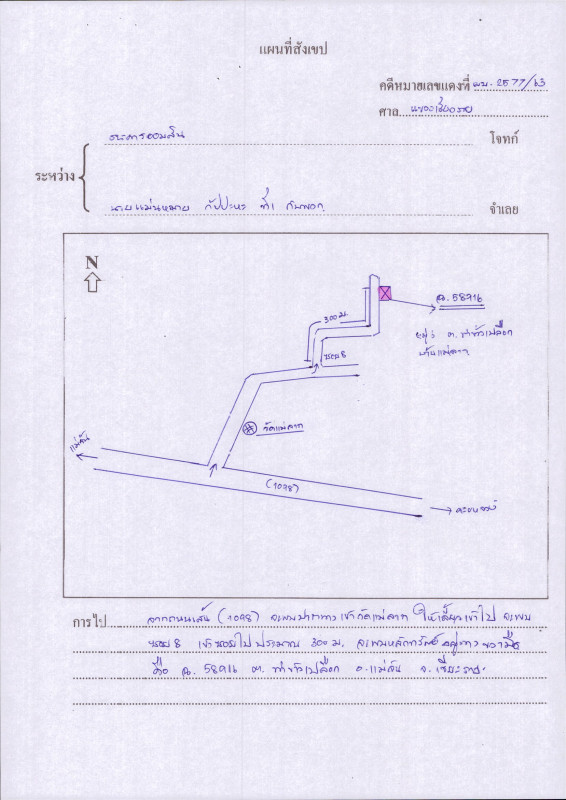 แผนที่สังเขป
คดีหมายเลขแดงที่ ผบ. 2577/63
ศาล
ธนาคารออมสิน โจทก์
ระหว่าง
นายแม่นหมาย จำเลย
N
ฉ. 58916
300 ม.
หมู่ 5 ต. ท่าข้าวเปลือก
บ้านแม่ลาก
ซอย 8
วัดแม่ลาก
แม่จัน
(1098)
การไป จากถนนเส้น (1098) จะพบปากทางเข้าวัดแม่ลาก ให้เลี้ยวเข้าไป จะพบ
ซอย 8 เข้าซอยไปประมาณ 300 ม. จะพบหลักทรัพย์อยู่ทางขวามือ
คือ ฉ. 58916 ต. ท่าข้าวเปลือก อ. แม่จัน จ. เชียงราย